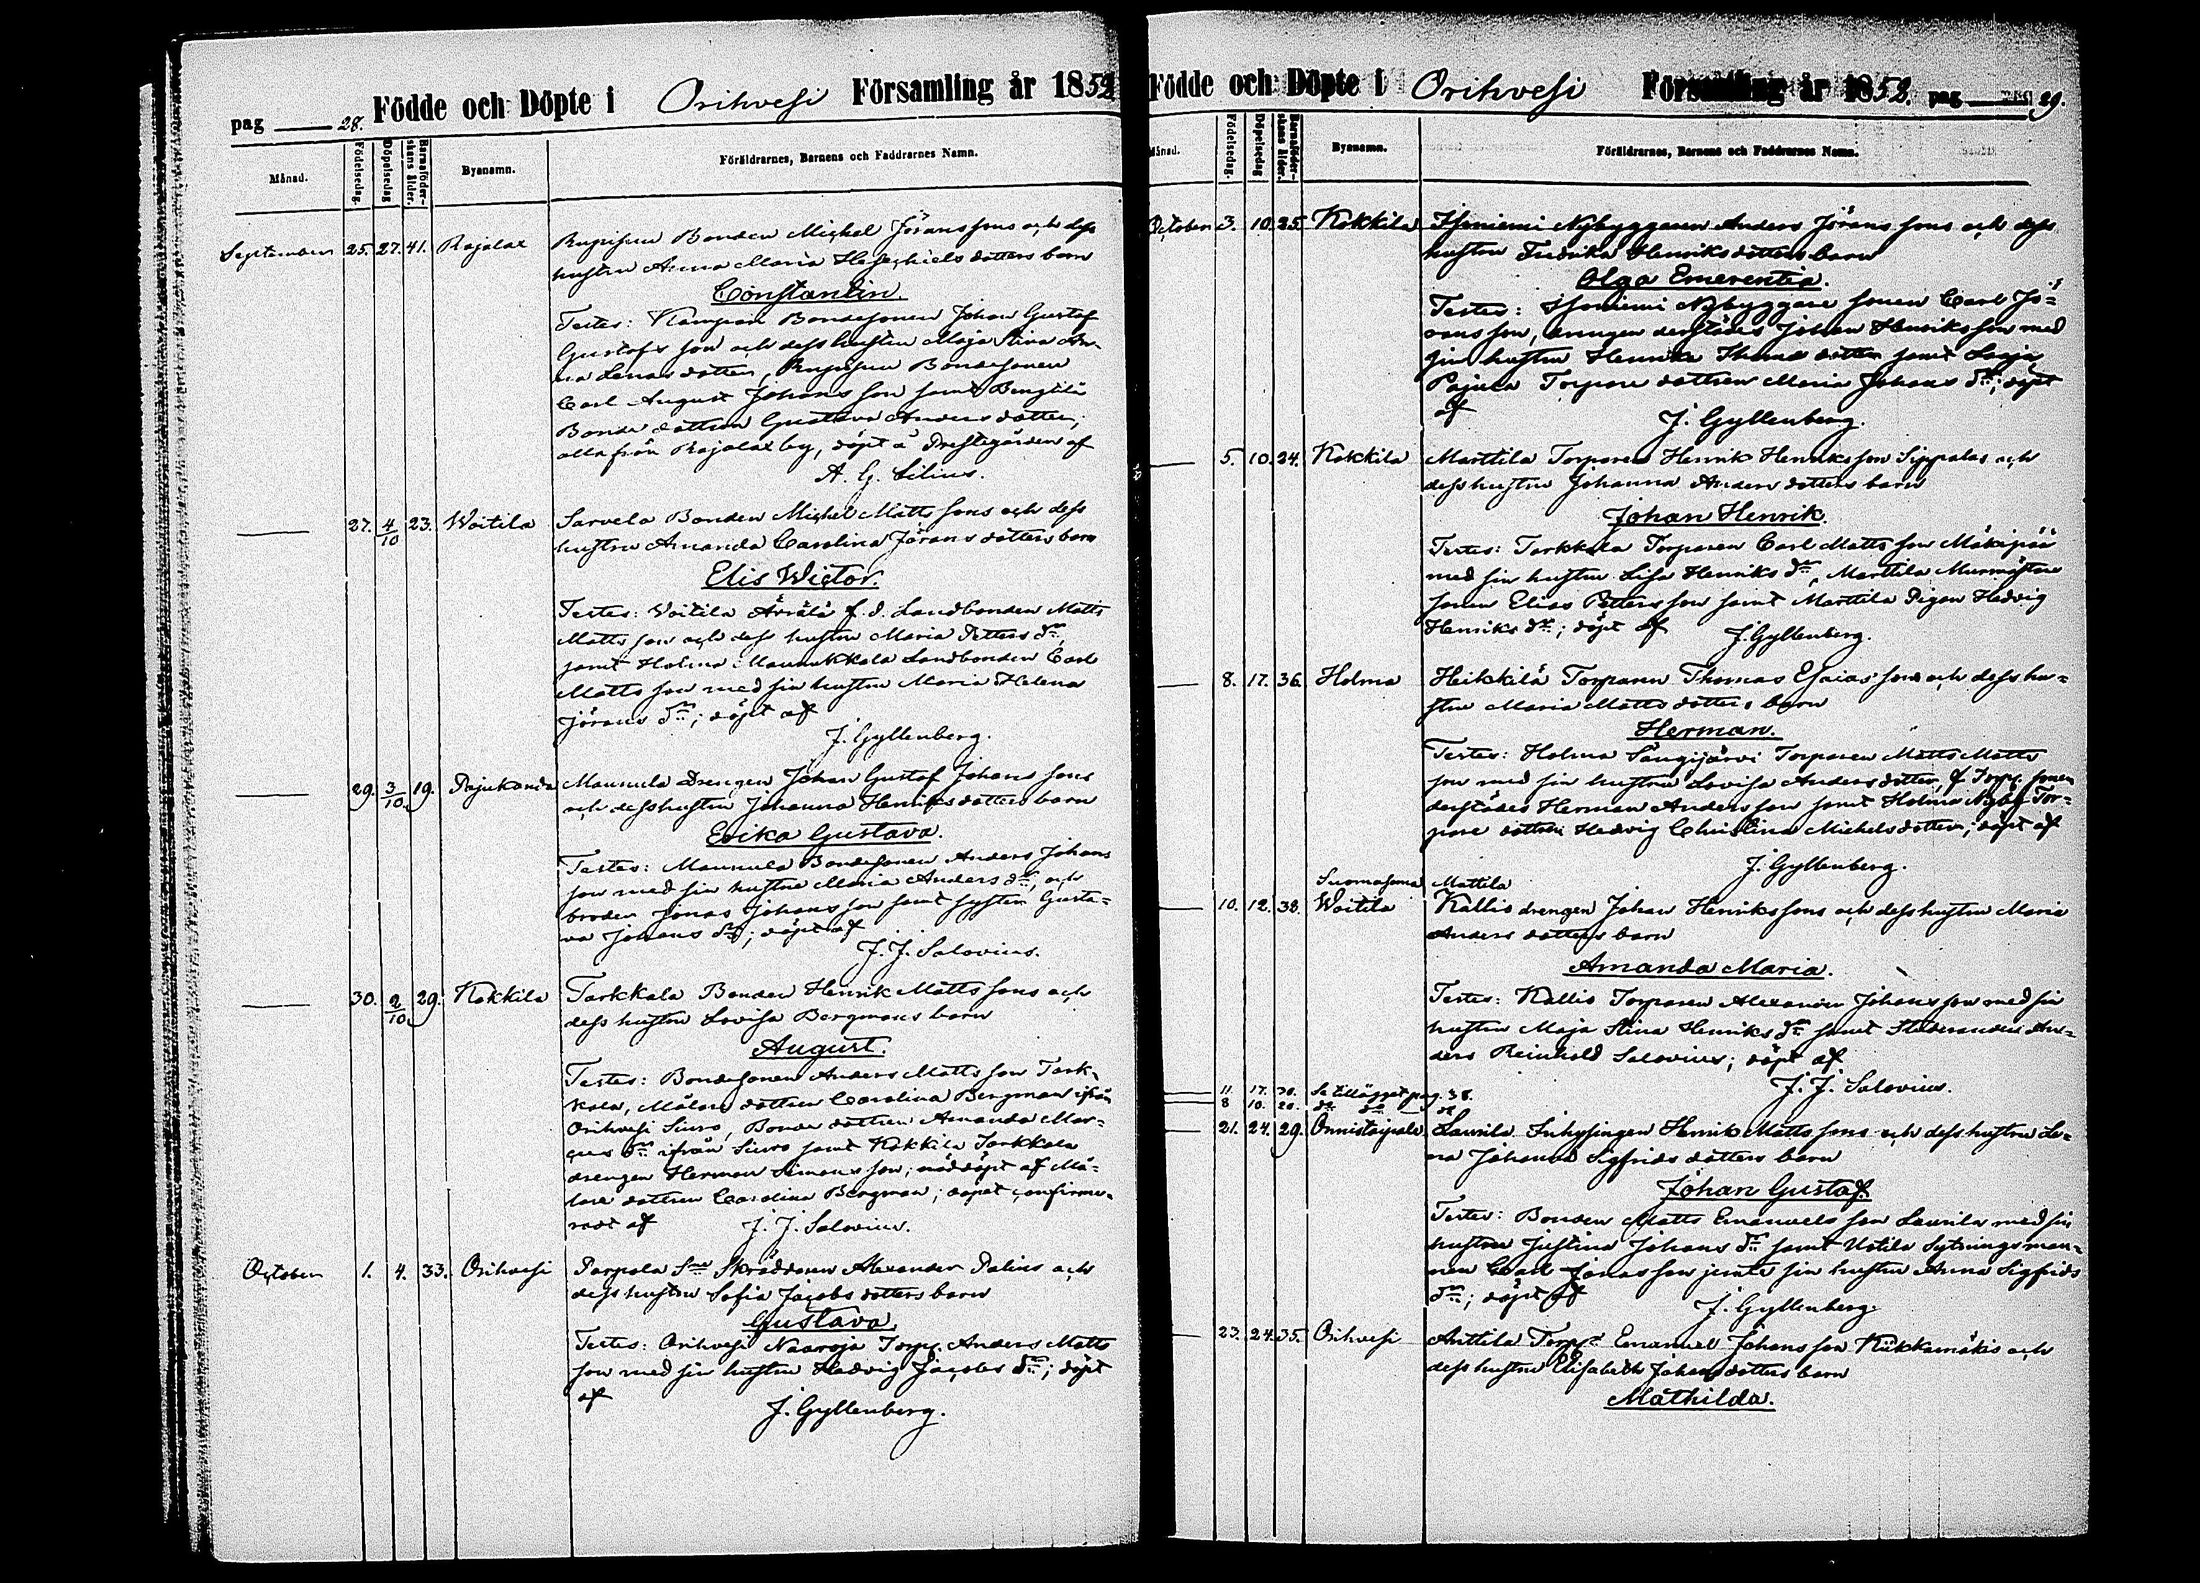 pag 28. Födde och Döpte i Orihvesi Församling år 1852
Månad. Födelsedag. Döpelsedag Barnaföderskans ålder. Byanamn. Föräldrarnes, Barnens och Faddrarnes Namn.
September 25. 27. 41. Rajalax Bonden Michel Jöransons och dess
hustru Anna Maria Hesechiels dotters barn
Constantin.
Testes: Bondesonen Johan Gustaf
Gustafs son och dess hustru Maja Stina
Lenas dotter, Bondesonen
Carl August Johans son samt Bengtilä
Bonde dottren Gustava Anders dotter,
alla från Rajalax by, döpt å Prestegården af
A. G. Cilius.
27. 4/10 23. Woitila Sarvela Bonden Michel Matts sons och dess
hustru Amanda Carolina Jörans dotters barn
Elis Wictor.
Testes: Woitila Ärrälä f. d. Landbonden Matts
Matts son och dess hustru Maria Petters dr,
samt Holma Maunukkala Landbonden Carl
Matts son med sin hustru Maria Helena
Jörans dr; döpt af
J. Gyllenberg.
29. 3/10 19. Pajukanda Mannula Drengen Johan Gustaf Johans sons
och dess hustru Johanna Henriks dotters barn
Erika Gustava.
Testes: Mannula Bondesonen Anders Johans
son med sin hustru Maria Anders dr, och
broder Jonas Johans son samt syster Gusta=
va Johans dr; döpt af
J. J. Salovius.
30. 2/10 29. Kokkila Tarkkala Bonden Henrik Matts sons och
dess hustru Lovisa Bergmans barn
August.
Testes: Bondesonen Anders Matts son Tark-
kala, Målare dottren Carolina Bergman ifrån
Orihvesi Siuro, Bonde dottren Amanda Mar=
cus dr ifrån Siuro samt Kokkila Tarkkala
drengen Herman Simons son; nöddöpt af Må=
lare dottren Carolina Bergman; döpet confirme-
radt af J. J. Salovius.
October 1. 4. 33. Orihvesi Parpola Skräddaren Alexander Palins och
dess hustru Sofia Jacobs dotters barn
Gustava.
Testes: Orihvesi Naaroja Torp. Anders Matts
son med sin hustru Hedvig Jacobs dr; döpt
af
J. Gyllenberg.
Födde och Döpte i Orihvesi Församling år 1852. pag 29.
Månad. Födelsedag. Döpelsedag Barnaföderskans ålder. Byanamn. Föräldrarnes, Barnens och Faddrarnes Namn.
October 3. 10. 25. Kokkila Isoniemi Nybyggaren Anders Jörans sons och dess
hustru Fredrika Henriks dotters barn
Olga Emerentia.
Testes: Isoniemi Nybyggare sonen Carl Jö=
rans son, drengen derstädes Johan Henriks son med
sin hustru Henrika dotter samt
Pajula Torpare dottren Maria Johans dr; döpt
af
J. Gyllenberg.
5. 10. 24. Kokkila Marttila Torparen Henrik Henriks son Sippalas och
dess hustru Johanna Anders dotters barn
Johan Henrik.
Testes: Tarkkala Torparen Carl Matts son Mäkipää
med sin hustru Lisa Henriks dr, Marttila Murmästare
sonen Elias Petters son samt Marttila Pigan Hedvig
Henriks dr; döpt af J. Gyllenberg.
8. 17. 36. Holma Heikkilä Torparen Thomas Esaias sons och dess hu=
stru Maria Matts dotters barn
Herman.
Testes: Holma Sängijärvi Torparen Matts Matts
son med sin hustru Lovisa Anders dotter, f. Torp. sonen
derstädes Herman Anders son samt Holma Tor=
pare dottren Hedvig Christina Michels dotter; döpt af
J. Gyllenberg.
Suomasema Mattila
10. 12. 38. Woitila Kallio drengen Johan Henriks sons och dess hustru Maria
Anders dotters barn
Amanda Maria.
Testes: Kallio Torparen Alexander Johans son med sin
hustru Maja Stina Henriks dr samt Studeranden An=
ders Reinhold Salovius; döpt af
J. J. Salovius.
11 17. 30. Se tillägget pag. 38.
8 10. 20. do do do
21. 24. 29. Onnistaipale Laurila Inhysingen Henrik Matts sons och dess hustru Le=
na Johanna Sigfrids dotters barn
Johan Gustaf.
Testes: Bonden Matts Emanuels son Laurila med sin
hustru Justina Johans dr samt Uotila Sytningsman=
nen Carl Jonas son jemte sin hustru Anna Sigfrids
dr; döpt af J. Gyllenberg.
23. 24. 35. Orihvesi Anttila Torp. Emanuel Johans son Kukkamäkis och
dess hustru Elisabeth Johans dotters barn
Mathilda.